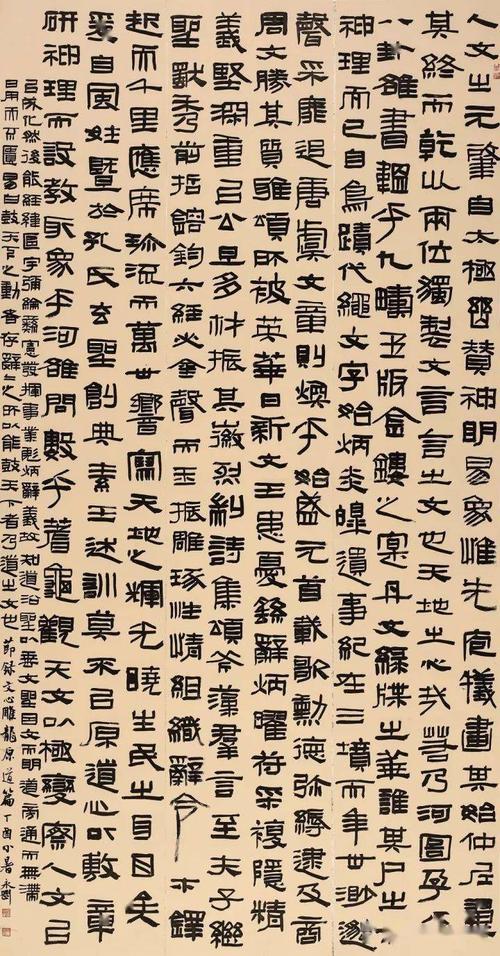 人文之元肇自太極幽贊神明易象惟先庖犧畫
其終而乾坤兩位獨製文言言之文也天地之心哉若乃河圖孕
八卦雒書韞乎九疇玉版金鏤之實丹文綠牒之華誰其尸之
神理而已自鳥蹟代繩文字始炳炎皞遺事紀在三墳而年世渺邈
聲采靡追唐虞文章則煥乎始盛元首載歌勳德彌縟逮及商
周文勝其質雅頌所被英華日新文王患憂繇辭炳曜符采複隱精
義堅深重以公旦多材振其徽烈糾詩集頌斧藻群言至夫子繼
聖獨秀前哲鎔鈞六經必金聲而玉振雕琢性情組織辭令木鐸
起而千里應席珍流而萬世響寫天地之輝光曉生民之耳目矣
爰自風姓暨於孔氏玄聖創典素王述訓莫不以原道心以敷章
研神理而設教取象乎河雒問數乎蓍龜觀天文以極變察人文以
以成化然後能經緯區宇彌綸彝憲發揮事業彪炳辭義故知道沿聖以垂文聖因文而明道旁通而無滯
日用而不匱易曰鼓天下之動者存辭〻之所以能鼓天下者乃道之文也 節錄文心雕龍原道篇 丁酉小暑永